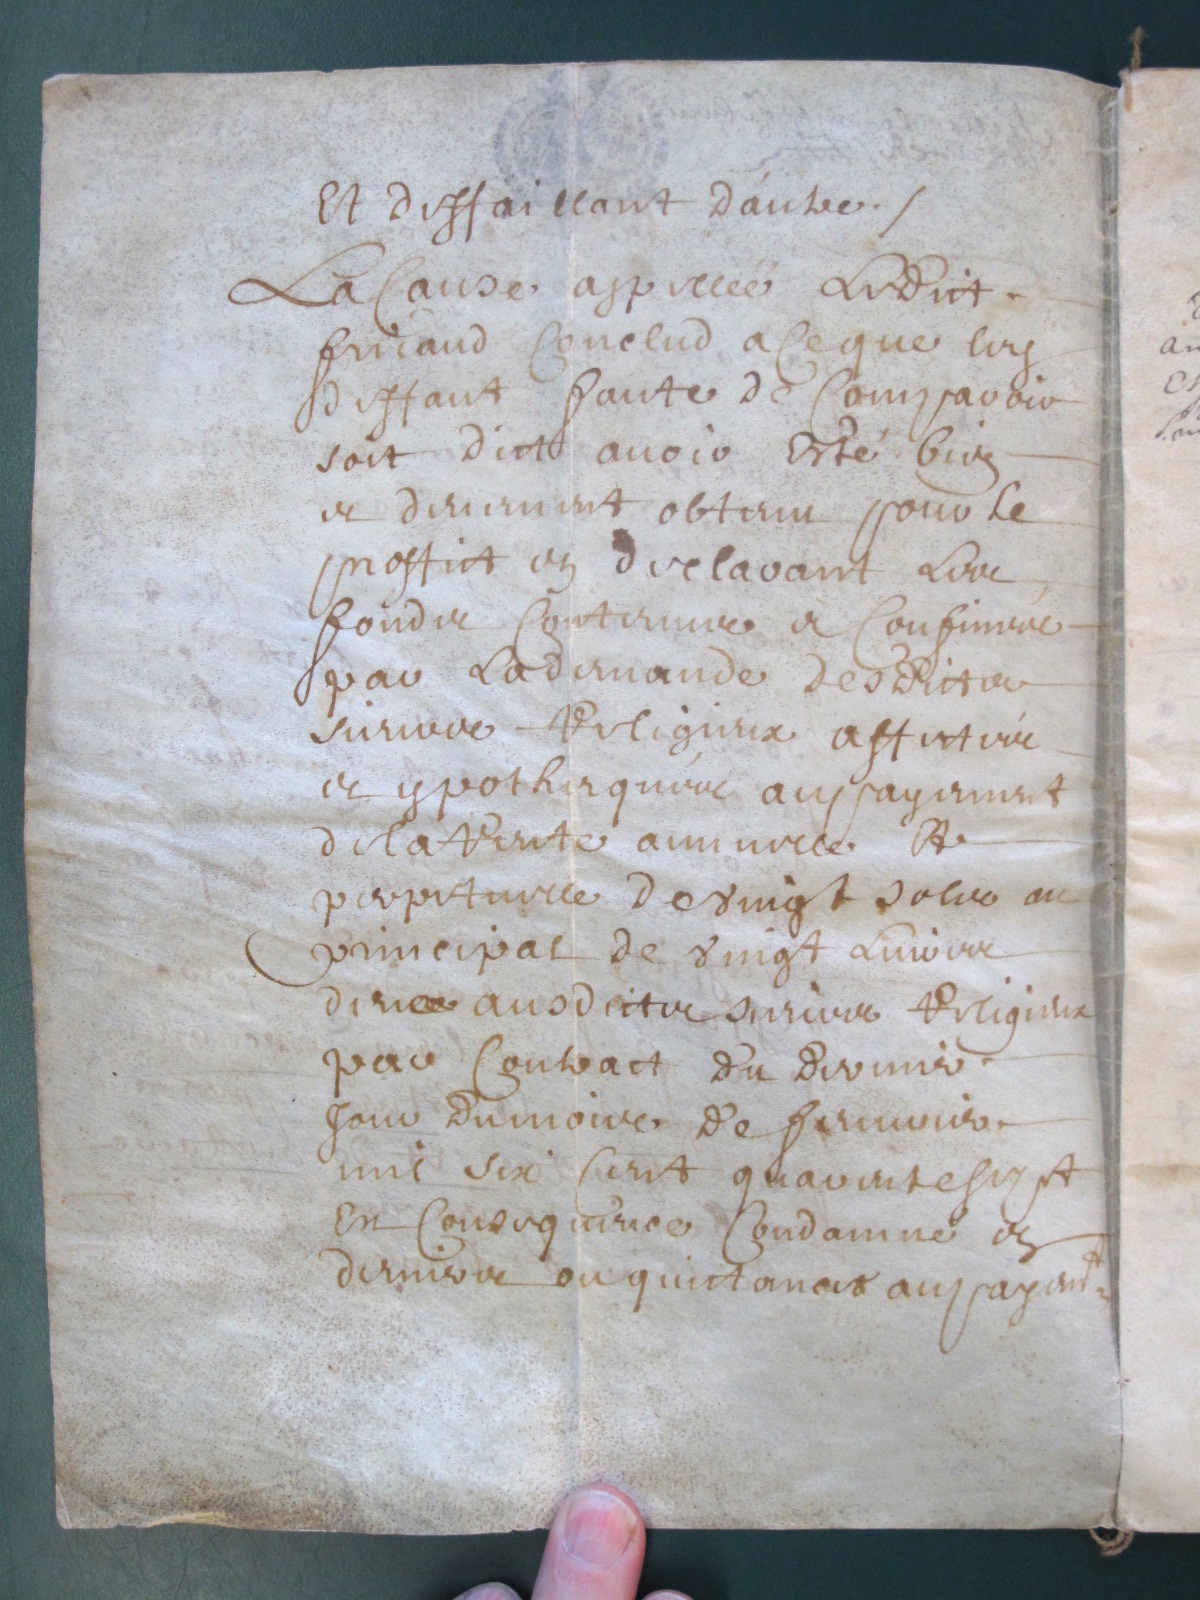 Et deffaillant d'autre. /
La Cause appellée Ledict
Conclud a ce que les
deffaut faute de Comparoir
soit dict avoir Esté bien
et deuement obtenu pour Le
proffict en declarant Les
fondz Contenues et Confinées
par La demande desdictes
sieurs Religieux affectées
et ypothequées au payement
de la Rente annuelle Et
perpetuelle de vingt solz au
principal de vingt Livres
deue ausdictz sieurs Religieux
par Contract du dernier
Jour du mois de
mil six Cent quarente sept
En Consequence Condamné en
deniers ou quictances au payemt